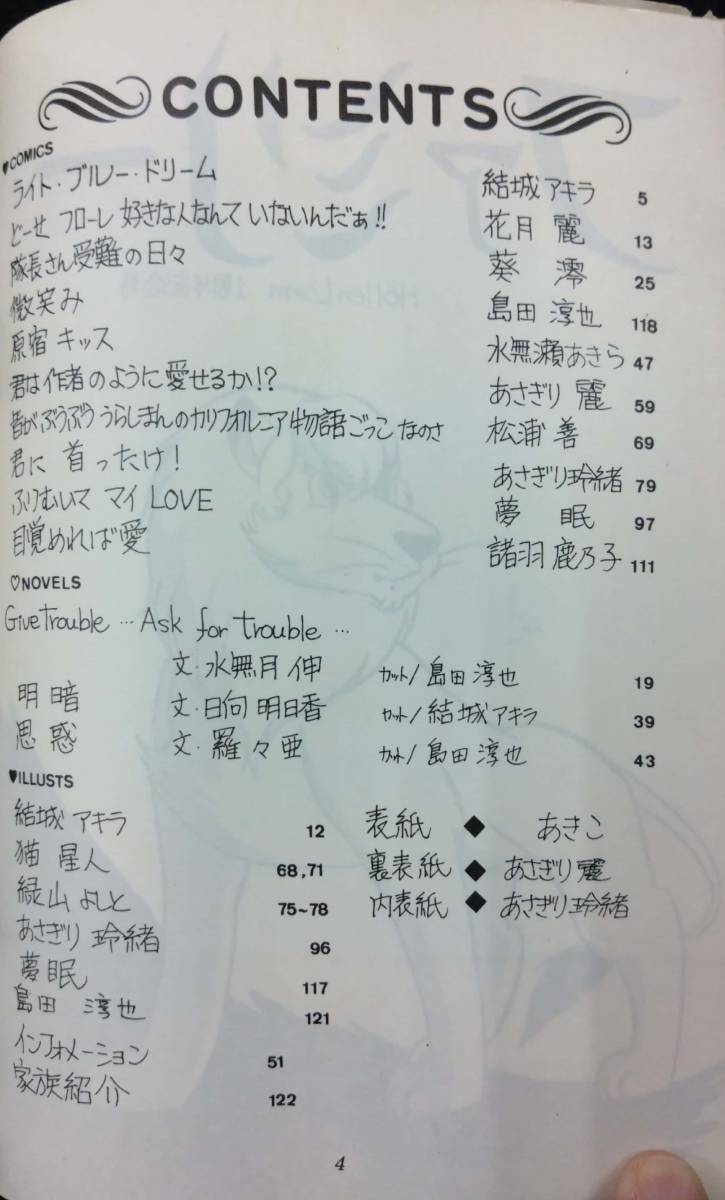 CONTENTS
♥COMICS
ライト・ブルー・ドリーム 結城 アキラ 5
どーせ フローレ 好きな人なんて いないんだぁ!! 花月 麗 13
隊長さん受難の日々 葵 澪 25
微笑み 島田 淳也 118
原宿 キッス 水無瀬あきら 47
君は作者のように愛せるか!? あさぎり 麗 59
皆がぶうぶう うらしまんのカリフォルニア物語ごっこ なのさ 松浦 善 69
君に 首ったけ! あさぎり玲緒 79
ふりむいて マイ LOVE 夢 眠 97
目覚めれば愛 諸羽 鹿乃子 111
♡NOVELS
Give Trouble … Ask for trouble …
文・水無月 伸 カット/ 島田 淳也 19
明暗 文・日向 明日香 カット/ 結城 アキラ 39
思惑 文・羅々亜 カット/ 島田 淳也 43
♥ILLUSTS
結城 アキラ 12 表紙 ◆ あきこ
猫 星人 68,71 裏表紙 ◆ あさぎり 麗
緑山 よしと 75~78 内表紙 ◆ あさぎり 玲緒
あさぎり 玲緒 96
夢眠 117
島田 淳也 121
インフォメーション 51
家族紹介 122
4